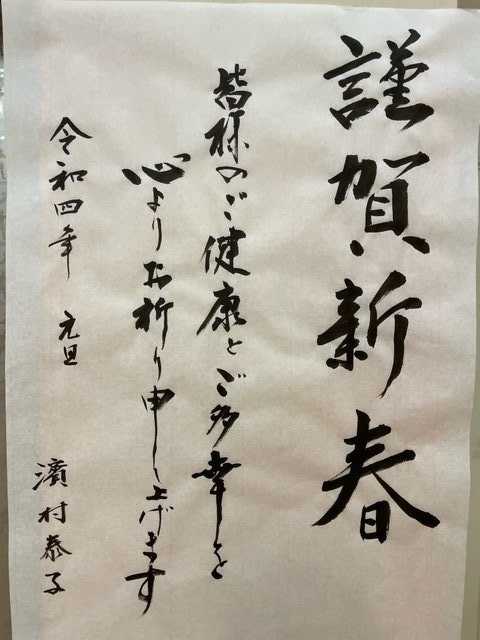 謹賀新春
皆様のご健康とご多幸を
心よりお祈り申し上げます
令和四年 元旦
濱村泰子